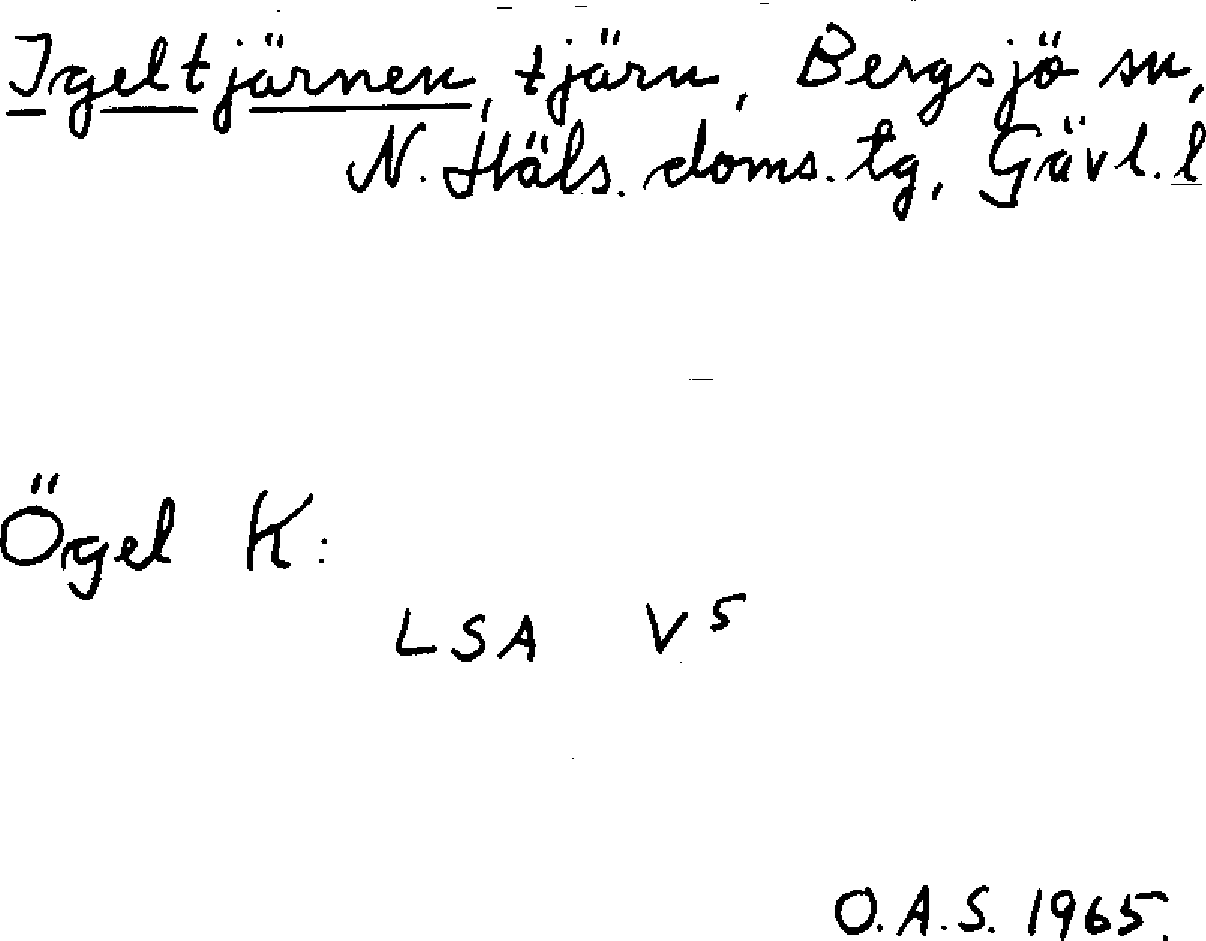 Igeltjärnen, tjärn, Bergsjö sn,
N. Häls. doms. tg, Gävl. l
Ögel K:
LSA V5
O.A.S. 1965.